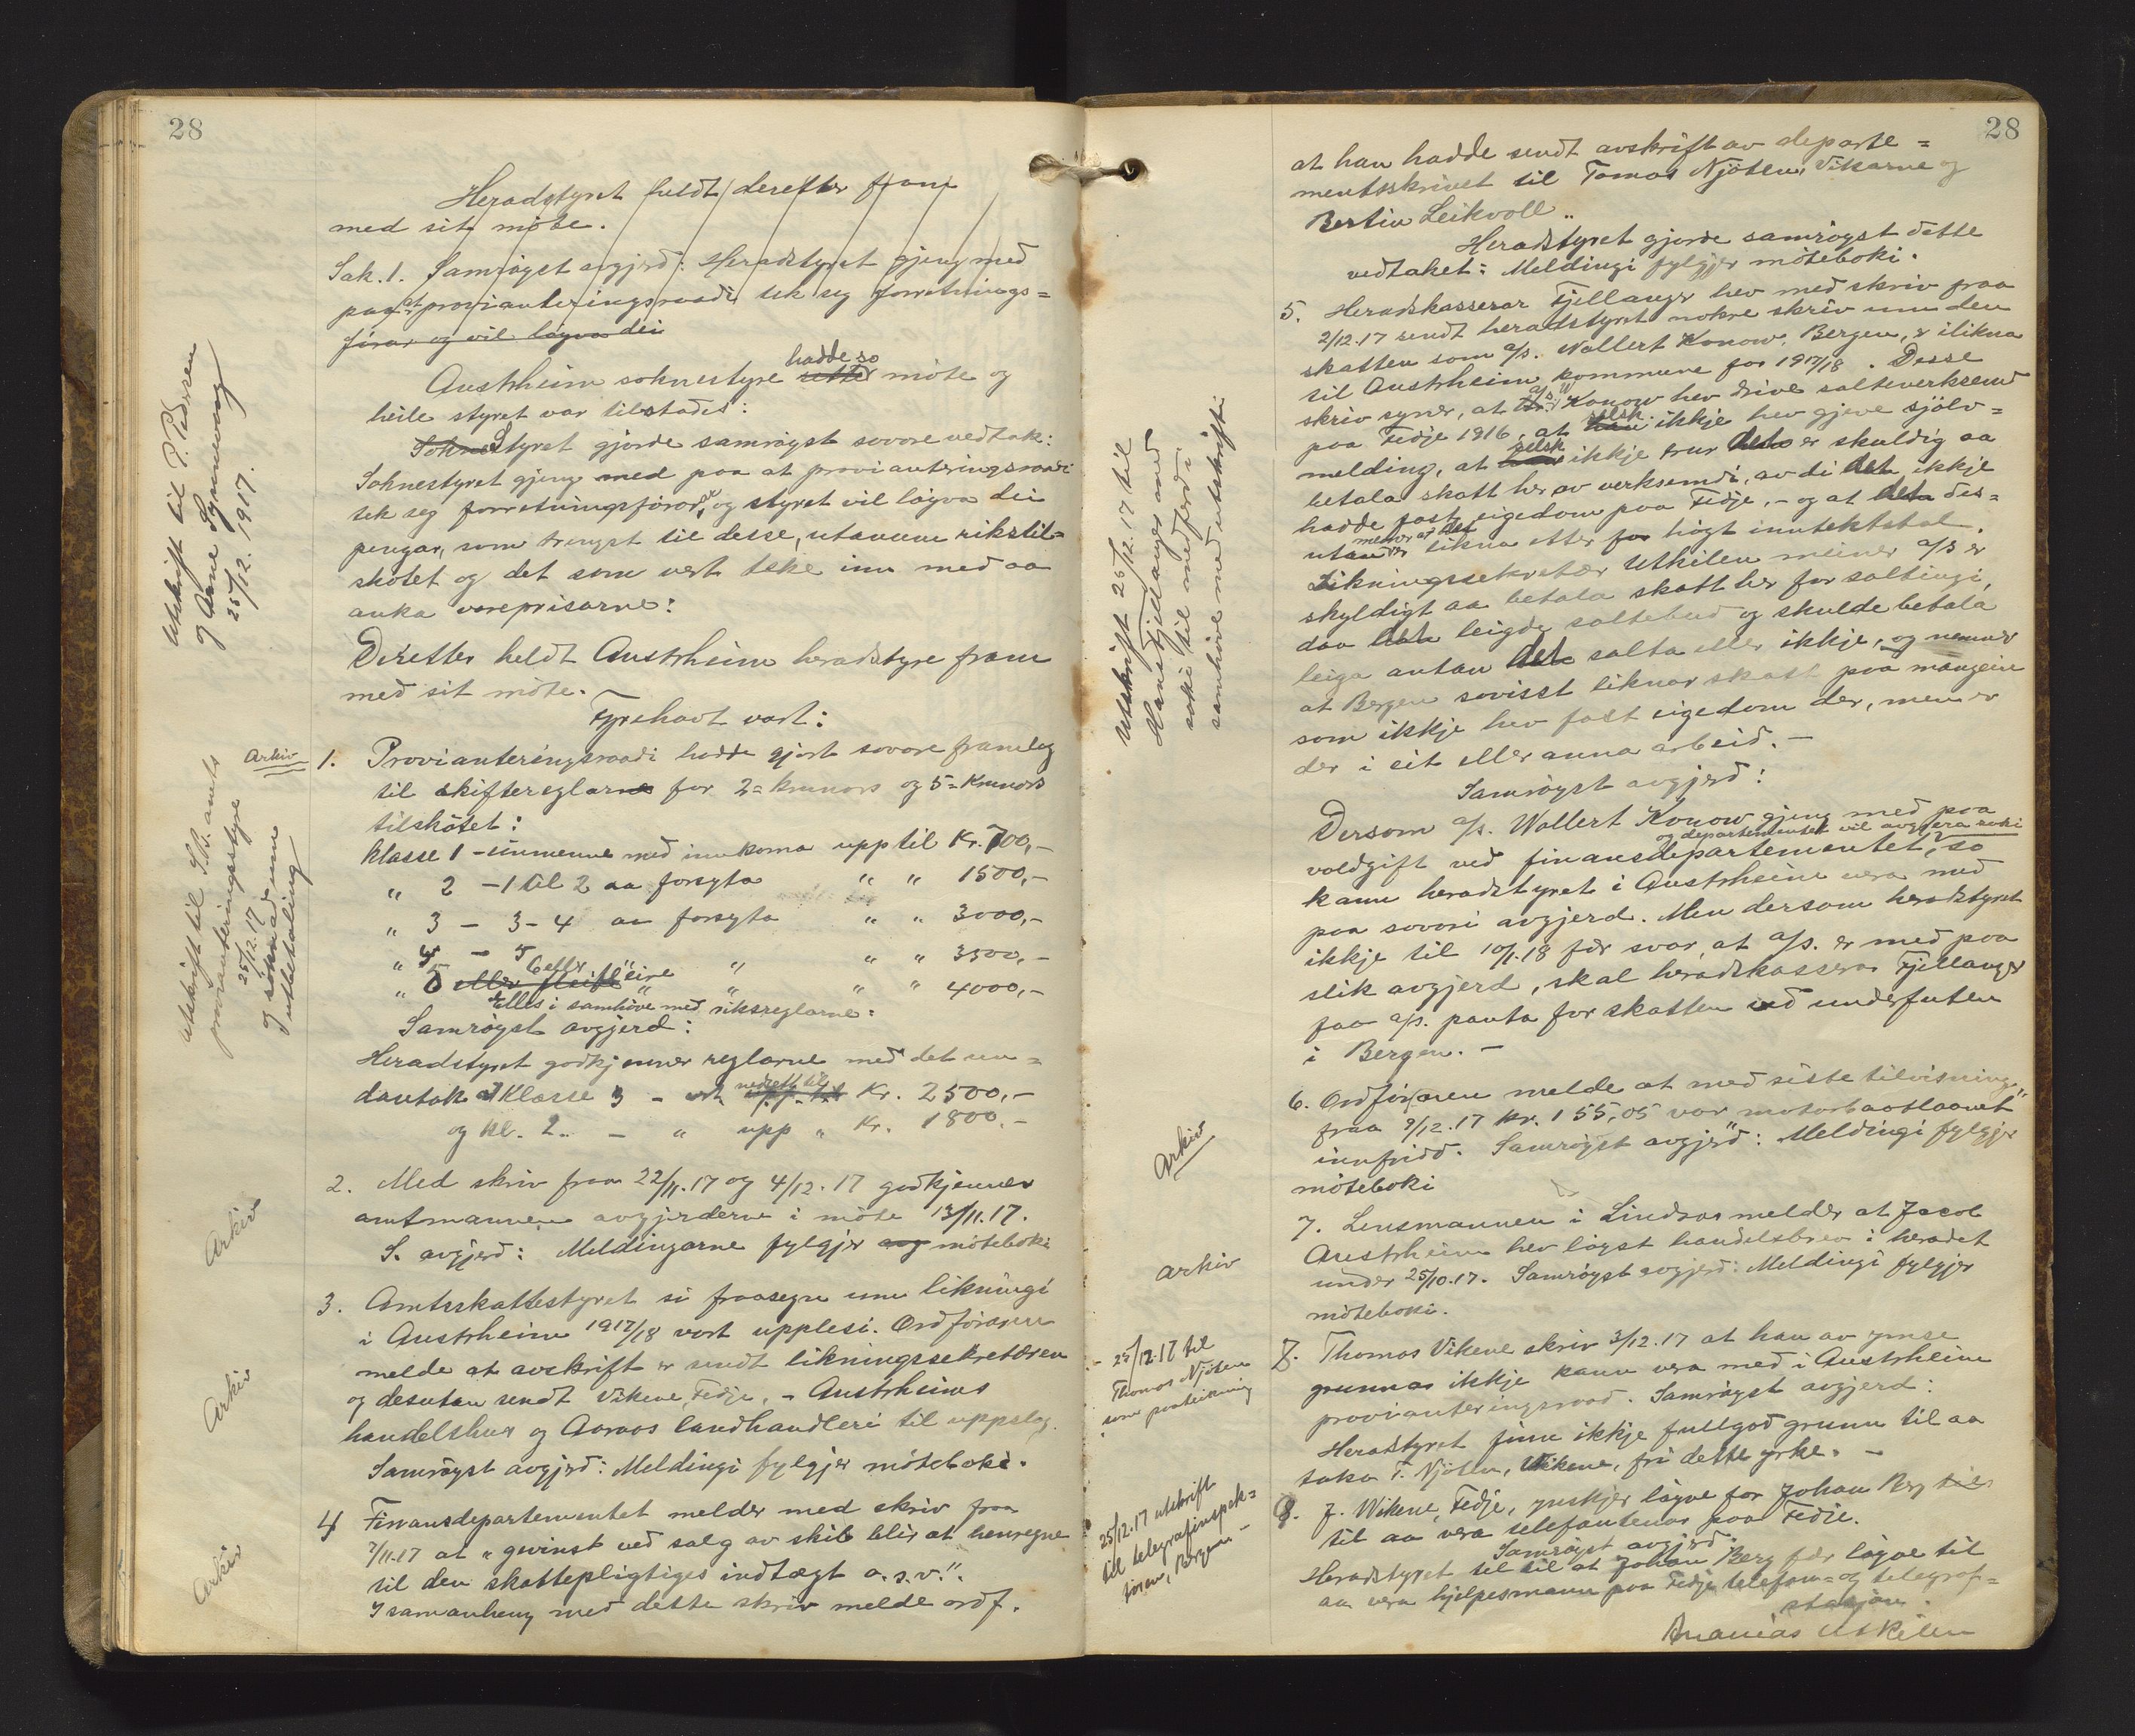 28
Heradstyret heldt deretter fram
med sit møte.
Sak. 1. Samrøyst avgjerd: Heradstyret gjeng med
paa at provianteringsraadi tek seg forretnings=
førar og vil løyva dei
Austrheim soknestyre hadde so møte og
heile styret var tilstades:
Styret gjorde samrøyst sovore vedtak:
Soknestyret gjeng med paa at provianteringsraadi
tek seg forretningsførar, og styret vil løyva dei
pengar, som trengst til desse, utanum rikstil=
skotet og det som vert teke inn med aa
auka vareprisarne:
Deretter heldt Austrheim heradstyre fram
med sit møte.
Fyrehavt vart:
1. Provianteringsraadi hadde gjort sovore framlegg
til skiftereglarne for 2=kruners og 5=kruners
tilskotet:
Klasse 1 - einmenne med innkoma upp til Kr. 700,-
" 2 - 1 til 2 aa forsyta " " 1500,-
" 3 - 3-4 aa forsyta " " 3000,-
" 4 - 5 " " " " 3500,-
" 5 6 eller fleire " " " " 4000,-
Elles i samhøve med riksreglarne:
Samrøyst avgjerd:
Heradstyret godkjenner reglarne med det un=
dantak at Klasse 3 - vert nedsett til Kr. 2500,-
og kl. 2. - " upp " Kr. 1800.-
2. Med skriv fraa 22/11.17 og 4/12.17 godkjenner
amtmannen avgjerderne i møte 13/11.17.
S. avgjerd: Meldingarne fylgjer møteboki
3. Amtsskattestyret si fraasegn um likningi
i Austrheim 1917/18 vart upplesi. Ordføraren
melde at avskrift er sendt likningssekretæren
og desutan sendt Vikene, Fedje, - Austrheims
handelshus og Aaraas landhandleri til uppslag.
Samrøyst avgjerd: Meldingi fylgjer møteboki.
4 Finansdepartementet melder med skriv fraa
7/11.17 at "gevinst ved salg av skib blir at henregne
til den skattepligtiges indtægt o.s.v.".
I samanheng med dette skriv melde ordf.
Utskrift til P. Pedersen
og Arne Synnevaag
25/12.1917.
Arkiv
Utskrift til S.B. amts
provianteringsstyre
25/12.17
og søknad um
utbetaling
Arkiv
Arkiv
Arkiv
28
at han hadde sendt avskrift av departe=
mentsskrivet til Tomas Njøten, Vikarne og
Bertin Leikvoll..
Heradstyret gjorde samrøyst dette
vedtaket: Meldingi fylgjer møteboki.
5. Heradskasserar Fjellanger hev med skriv fraa
2/12.17 sendt heradstyret nokre skriv um den
skatten som a/s. Wollert Konow, Bergen, er ilikna
til Austrheim kommune for 1917/18. Desse
skriv syner, at a/s. W. Konow hev drive salteverksemd
paa Fedje 1916, at selsk. ikkje hev gjeve sjølv=
melding, at selsk ikkje trur det er skuldig aa
betala skatt her av verksemdi, av di det ikkje
hadde fast eigedom paa Fedje, - og at det des=
utan meiner at det er likna etter for høgt inntektstal.
Likningssekretær Utkilen meiner a/s er
skyldigt aa betala skatt her for saltingi,
daa det leigde saltebud og skulde betala
leiga antan det salta eller ikkje, og nemner
at Bergen sovisst liknar skatt paa mangein
som ikkje hev fast eigedom der, men er
der i eit eller anna arbeid. -
Samrøyst avgjerd:
Dersom a/s. Wollert Konow gjeng med paa
og departementet vil avgjera saki
voldgift ved finansdepartementet, so
kann heradstyret i Austrheim vera med
paa sovori avgjerd. Men dersom heradstyret
ikkje til 10/1.18 fær svar, at a/s. er med paa
slik avgjerd, skal heradskasserar Fjellanger
faa a/s. panta for skatten ved underfuten
i Bergen. -
6. Ordføraren melde at med siste tilvisning
fraa 9/12.17 kr. 155,05 var motorbaatlaanet
innfridd. Samrøyst avgjerd: Meldingi fylgjer
møteboki
7. Lensmannen i Lindaas melder at Jacob
Austrheim hev løyst handelsbrev i heradet
under 25/10.17. Samrøyst avgjerd: Meldingi fylgjer
møteboki.
8. Thomas Vikene skriv 3/12.17 at han av ymse
grunnar ikkje kann vera med i Austrheim
provianteringsraad. Samrøyst avgjerd:
Heradstyret finn ikkje fullgod grunn til aa
taka T. Njøten, Vikene, fri dette yrke. -
9. J. Wikene, Fedje, ynskjer løyve for Johan Berg
til aa vera telefontenar paa Fedje.
Samrøyst avgjerd:
Heradstyret til til at Johan Berg fær løyve til
aa vera hjelpesmann paa Fedje telefon= og telegraf=
stasjon.
Ananias Utkilen
Utskrift 25/12.17 til
Hans Fjellanger med
saki til medferd i
samhøve med utskrifti
Arkiv
Arkiv
25/12.17 til
Thomas Njøten
som paateikning
25/12.17 utskrift
til telegrafinspek=
tøren, Bergen -